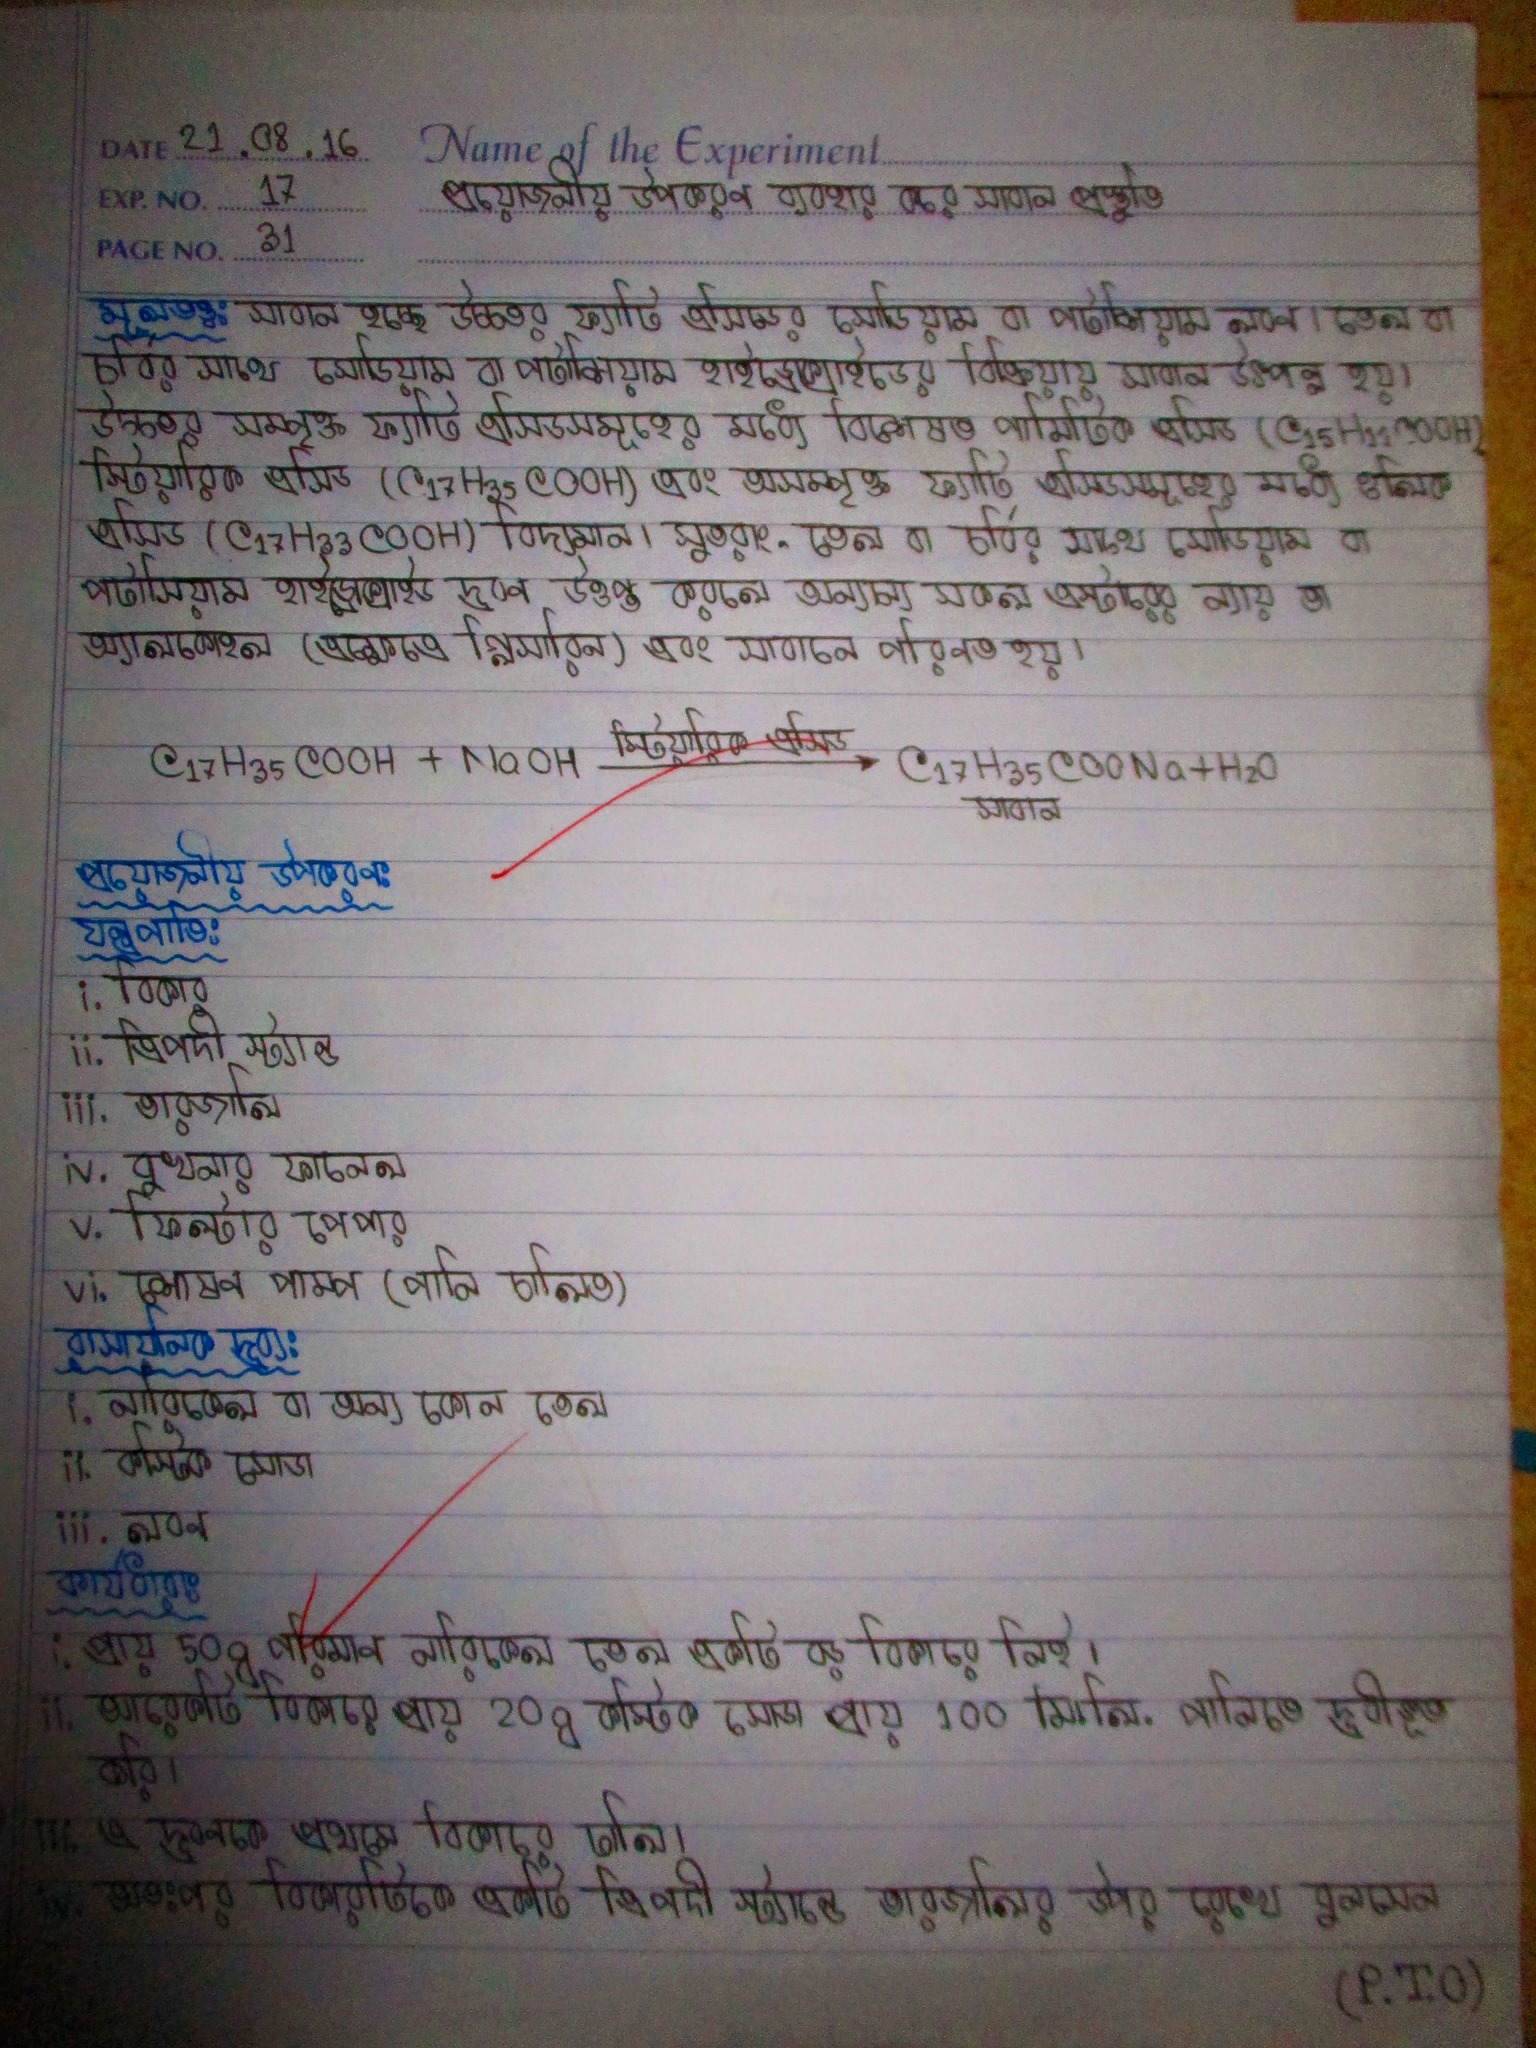 DATE 21.08.16 Name of the Experiment
EXP. NO. 17 প্রয়োজনীয় উপকরণ ব্যবহার করে সাবান প্রস্তুতি
PAGE NO. 31
মূলতত্ত্ব: সাবান হচ্ছে উচ্চতর ফ্যাটি এসিডের সোডিয়াম বা পটাশিয়াম লবণ। তেল বা
চর্বির সাথে সোডিয়াম বা পটাশিয়াম হাইড্রোক্সাইডের বিক্রিয়ায় সাবান উৎপন্ন হয়।
উচ্চতর সম্পৃক্ত ফ্যাটি এসিডসমূহের মধ্যে বিশেষত পামিটিক এসিড (C15H31COOH)
স্টিয়ারিক এসিড (C17H35COOH) এবং অসম্পৃক্ত ফ্যাটি এসিডসমূহের মধ্যে ওলিক
এসিড (C17H33COOH) বিদ্যমান। সুতরাং তেল বা চর্বির সাথে সোডিয়াম বা
পটাসিয়াম হাইড্রোক্সাইড দ্রবণ উত্তপ্ত করলে অন্যান্য সকল এস্টারের ন্যায় তা
অ্যালকোহল (এক্ষেত্রে গ্লিসারিন) এবং সাবানে পরিণত হয়।
স্টিয়ারিক এসিড
C17H35COOH + NaOH → C17H35COONa + H2O
সাবান
প্রয়োজনীয় উপকরণ:
যন্ত্রপাতি:
i. বিকার
ii. ত্রিপদী স্ট্যান্ড
iii. তারজালি
iv. বুখনার ফানেল
v. ফিল্টার পেপার
vi. শোষণ পাম্প (পানি চালিত)
রাসায়নিক দ্রব্য:
i. নারিকেল বা অন্য কোন তেল
ii. কস্টিক সোডা
iii. লবণ
কার্যধারা:
i. প্রায় 50g পরিমাণ নারিকেল তেল একটি বড় বিকারে নিই।
ii. আরেকটি বিকারে প্রায় 20g কস্টিক সোডা প্রায় 100 মি.লি. পানিতে দ্রবীভূত
করি।
iii. এ দ্রবণকে প্রথমে বিকারে ঢালি।
iv. অতঃপর বিকারটিকে একটি ত্রিপদী স্ট্যান্ডে তারজালির উপর রেখে বুনসেন
(P.T.O)